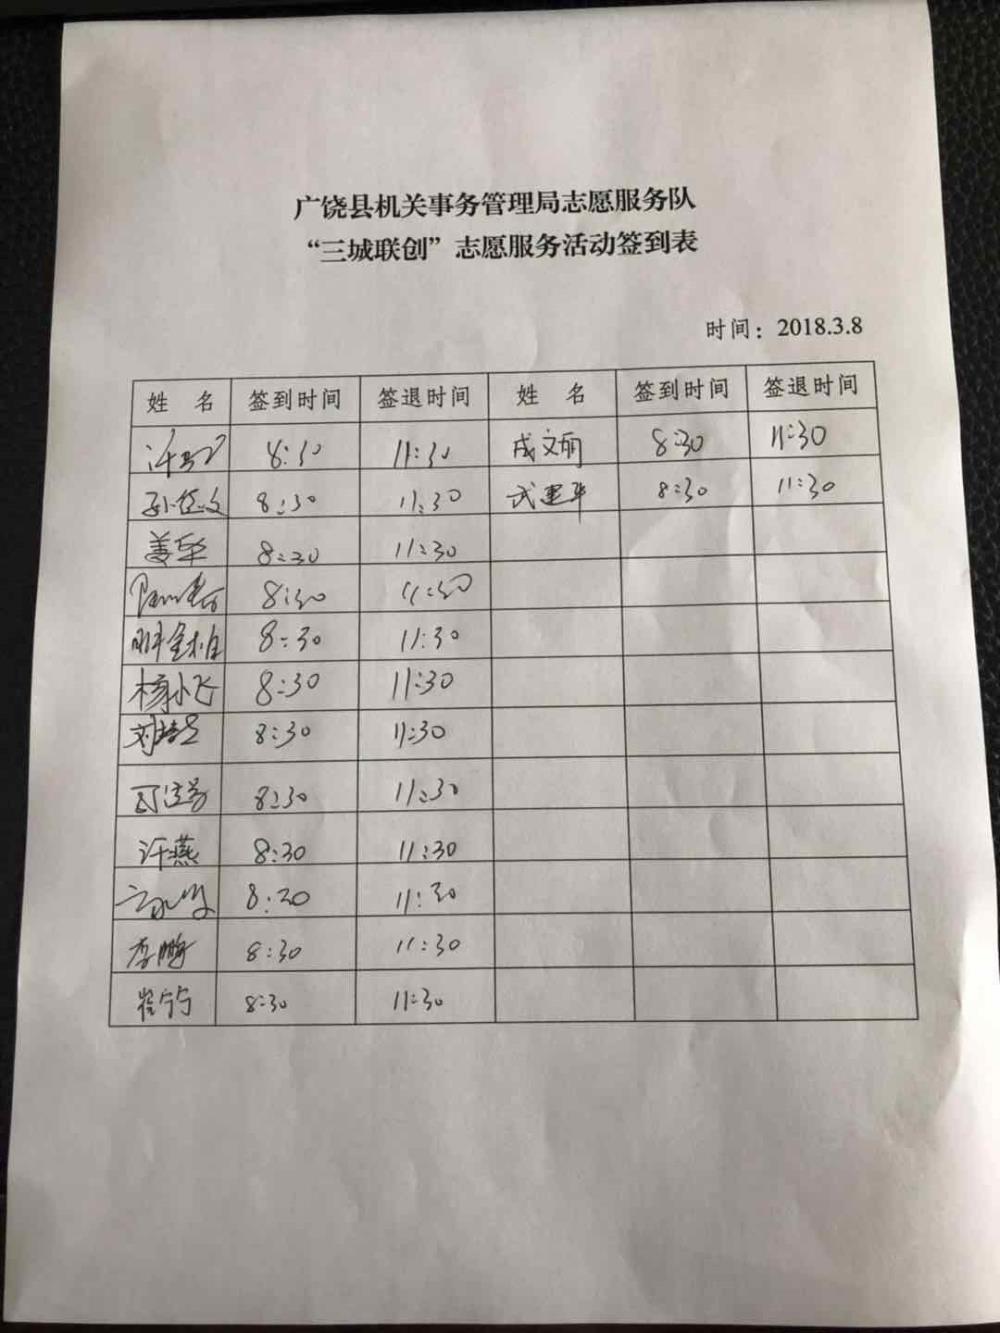 广饶县机关事务管理局志愿服务队
“三城联创”志愿服务活动签到表
时间：2018.3.8
姓 名 签到时间 签退时间 姓 名 签到时间 签退时间
8:30 11:30 成文丽 8:30 11:30
8:30 11:30 武建华 8:30 11:30
姜军 8:30 11:30
8:30 11:30
8:30 11:30
杨小飞 8:30 11:30
8:30 11:30
8:30 11:30
许燕 8:30 11:30
8:30 11:30
李鹏 8:30 11:30
8:30 11:30